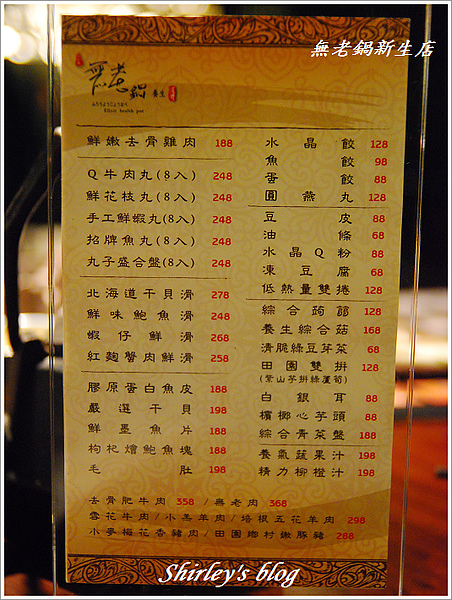 無老鍋新生店
無老鍋 養生
Elixir health pot
鮮嫩去骨雞肉 188
Q牛肉丸(8入) 248
鮮花枝丸(8入) 248
手工鮮蝦丸(8入) 248
招牌魚丸(8入) 248
丸子盛合盤(8入) 248
北海道干貝滑 278
鮮味鮑魚滑 248
蝦仔鮮滑 268
紅麴蟹肉鮮滑 258
膠原蛋白魚皮 188
嚴選干貝 198
鮮墨魚片 188
枸杞燴鮑魚塊 188
毛肚 198
水晶餃 128
魚餃 98
蛋餃 88
圓燕丸 128
豆皮 88
油條 68
水晶Q粉 88
凍豆腐 68
低熱量雙捲 128
綜合蒟蒻 128
養生綜合菇 168
清脆綠豆芽菜 68
田園雙拼 128
(紫山芋拼綠蘆筍)
白銀耳 88
檳榔心芋頭 88
綜合青菜盤 188
養氣蔬果汁 198
精力柳橙汁 198
去骨肥牛肉 358 / 無老肉 368
雪花牛肉/小羔羊肉/培根五花羊肉 298
小麥梅花香豬肉/田園鄉村嫩豚豬 288
Shirley's blog